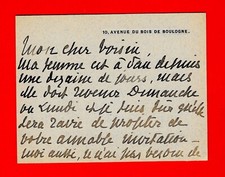 10, AVENUE DU BOIS DE BOULOGNE.
Mon cher voisin,
Ma femme est à Pau depuis
une dizaine de jours, mais
elle doit revenir Dimanche
ou Lundi et je suis sûr qu'elle
sera ravie de profiter de
votre aimable invitation —
moi aussi, je n'ai pas besoin de